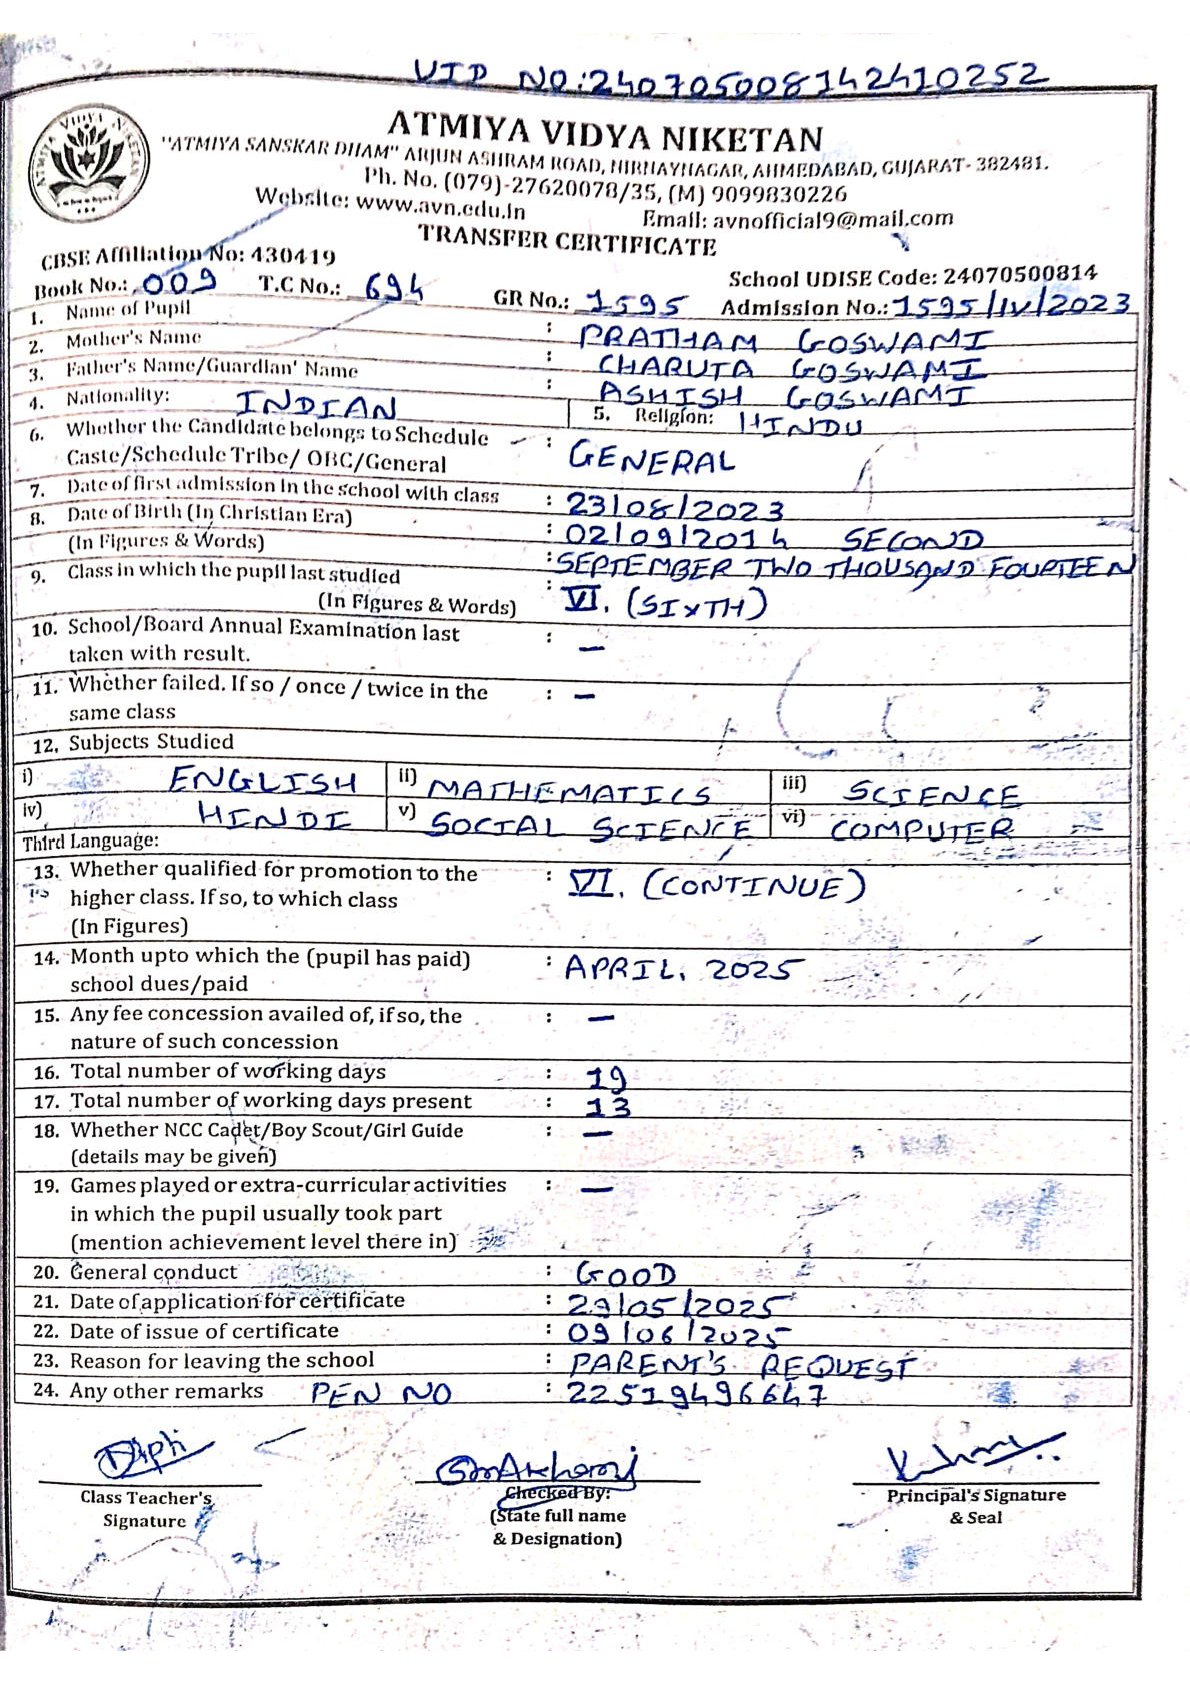 UID NO:240705008142410252
ATMIYA VIDYA NIKETAN
"ATMIYA SANSKAR DHAM" ARJUN ASHRAM ROAD, NIRNAYNAGAR, AHMEDABAD, GUJARAT- 382481.
Ph. No. (079)-27620078/35, (M) 9099830226
Website: www.avn.edu.in Email: avnofficial9@mail.com
TRANSFER CERTIFICATE
CBSE Affiliation No: 430419
School UDISE Code: 24070500814
Book No.: 009 T.C No.: 694 GR No.: 1595 Admission No.: 1595/IV/2023
1. Name of Pupil : PRATHAM GOSWAMI
2. Mother's Name : CHARUTA GOSWAMI
3. Father's Name/Guardian' Name : ASHISH GOSWAMI
4. Nationality: INDIAN 5. Religion: HINDU
6. Whether the Candidate belongs to Schedule : GENERAL
Caste/Schedule Tribe/ OBC/General
7. Date of first admission in the school with class : 23/08/2023
8. Date of Birth (In Christian Era) : 02/09/2014 SECOND
(In Figures & Words) : SEPTEMBER TWO THOUSAND FOURTEEN
9. Class in which the pupil last studied : VI. (SIXTH)
(In Figures & Words)
10. School/Board Annual Examination last : —
taken with result.
11. Whether failed. If so / once / twice in the : —
same class
12. Subjects Studied
i) ENGLISH ii) MATHEMATICS iii) SCIENCE
iv) HINDI v) SOCIAL SCIENCE vi) COMPUTER
Third Language:
13. Whether qualified for promotion to the : VI. (CONTINUE)
higher class. If so, to which class
(In Figures)
14. Month upto which the (pupil has paid) : APRIL. 2025
school dues/paid
15. Any fee concession availed of, if so, the : —
nature of such concession
16. Total number of working days : 19
17. Total number of working days present : 13
18. Whether NCC Cadet/Boy Scout/Girl Guide : —
(details may be given)
19. Games played or extra-curricular activities : —
in which the pupil usually took part
(mention achievement level there in)
20. General conduct : GOOD
21. Date of application for certificate : 29/05/2025
22. Date of issue of certificate : 09/06/2025
23. Reason for leaving the school : PARENT'S REQUEST
24. Any other remarks PEN NO : 22519496647
Class Teacher's Checked By: Principal's Signature
Signature (State full name & Seal
& Designation)